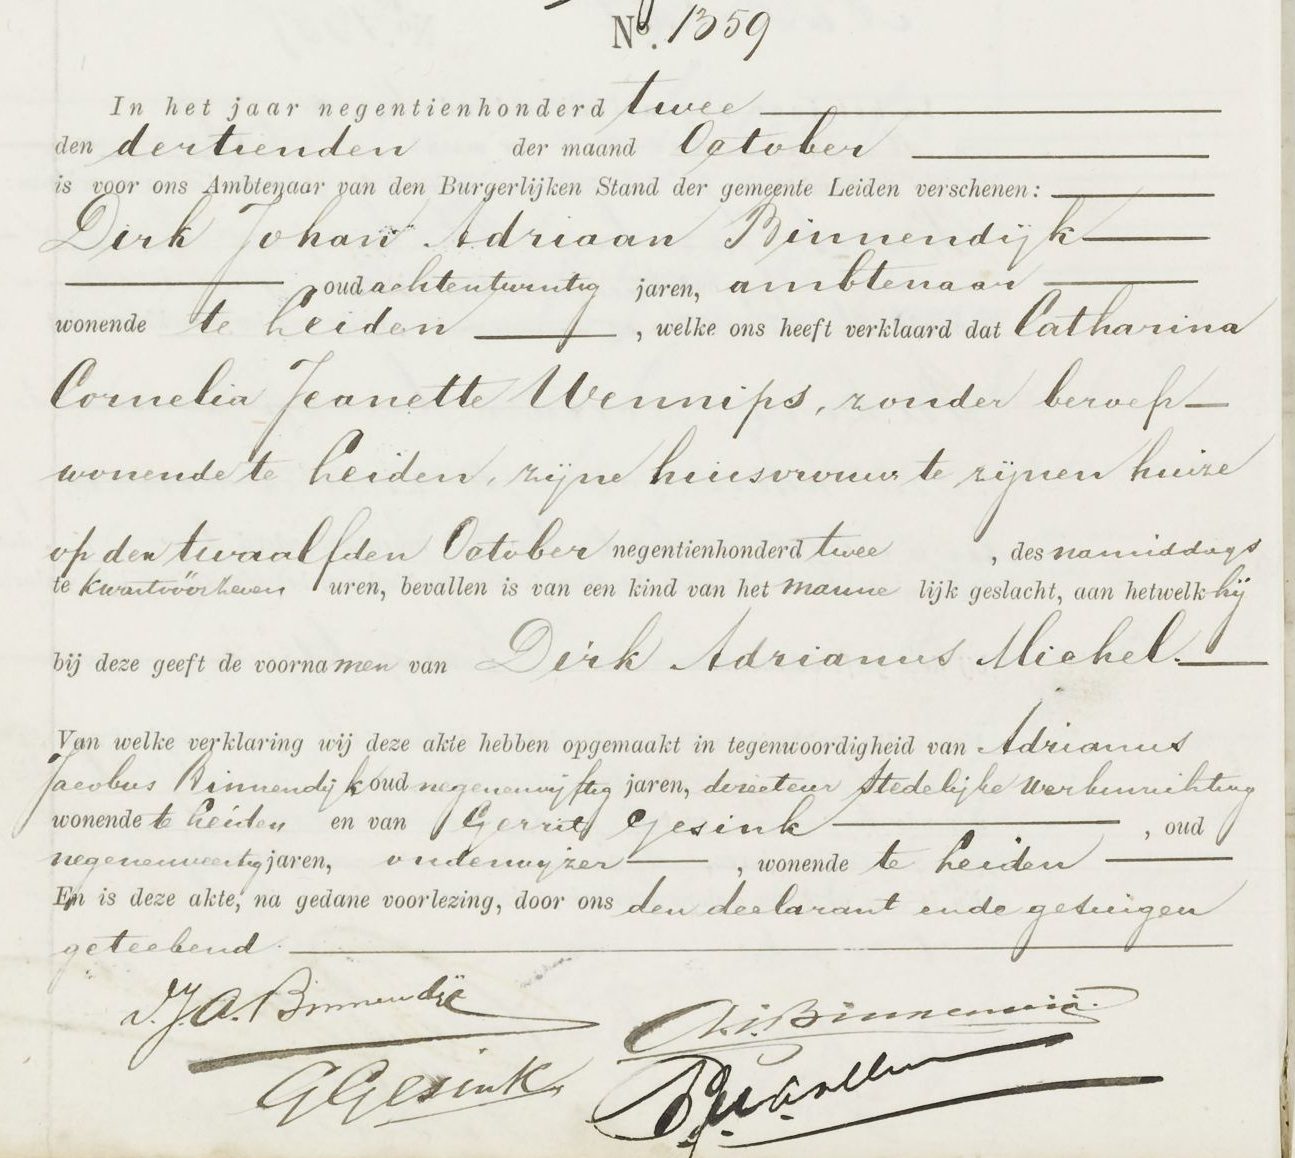 Nº. 1359
In het jaar negentienhonderd twee
den dertienden der maand October
is voor ons Ambtenaar van den Burgerlijken Stand der gemeente Leiden verschenen:
Dirk Johan Adriaan Binnendijk
oud achtentwintig jaren, ambtenaar
wonende te Leiden , welke ons heeft verklaard dat Catharina
Cornelia Jeanette Wennips, zonder beroep
wonende te Leiden, zijne huisvrouw te zijnen huize
op den twaalfden October negentienhonderd twee , des namiddags
te kwartvóórzeven uren, bevallen is van een kind van het manne lijk geslacht, aan hetwelk hij
bij deze geeft de voornamen van Dirk Adrianus Michel.
Van welke verklaring wij deze akte hebben opgemaakt in tegenwoordigheid van Adrianus
Jacobus Binnendijk oud negenenvijftig jaren, directeur Stedelijke Werkinrichting
wonende te Leiden en van Gerrit Gesink , oud
negenenveertig jaren, onderwijzer , wonende te Leiden
En is deze akte, na gedane voorlezing, door ons den declarant ende getuigen
geteekend
D.J.A. Binnendijk
A.J. Binnendijk
G Gesink